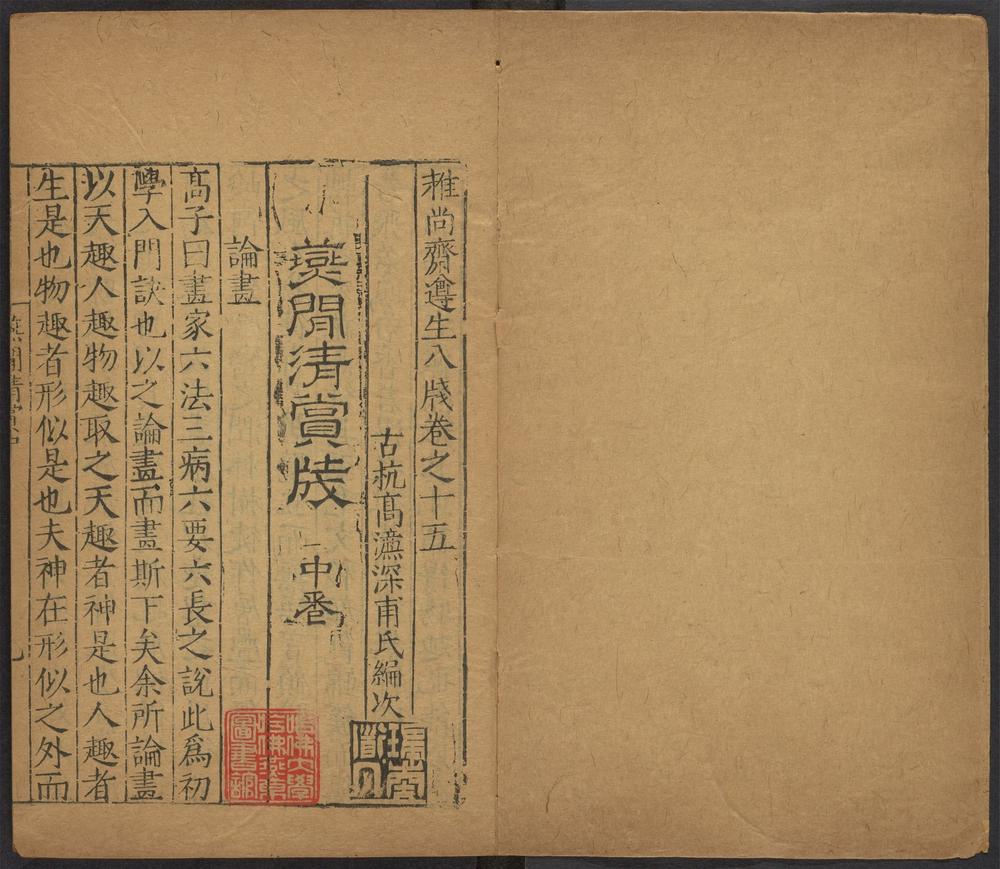 雅尚齋遵生八牋卷之十五
古杭高濂深甫氏編次
燕閒清賞牋
中卷
論畫
高子曰畫家六法三病六要六長之說此爲初
學入門訣也以之論畫而畫斯下矣余所論畫
以天趣人趣物趣取之天趣者神是也人趣者
生是也物趣者形似是也夫神在形似之外而
燕閒清賞
哈佛大學
哈佛燕京
圖書館